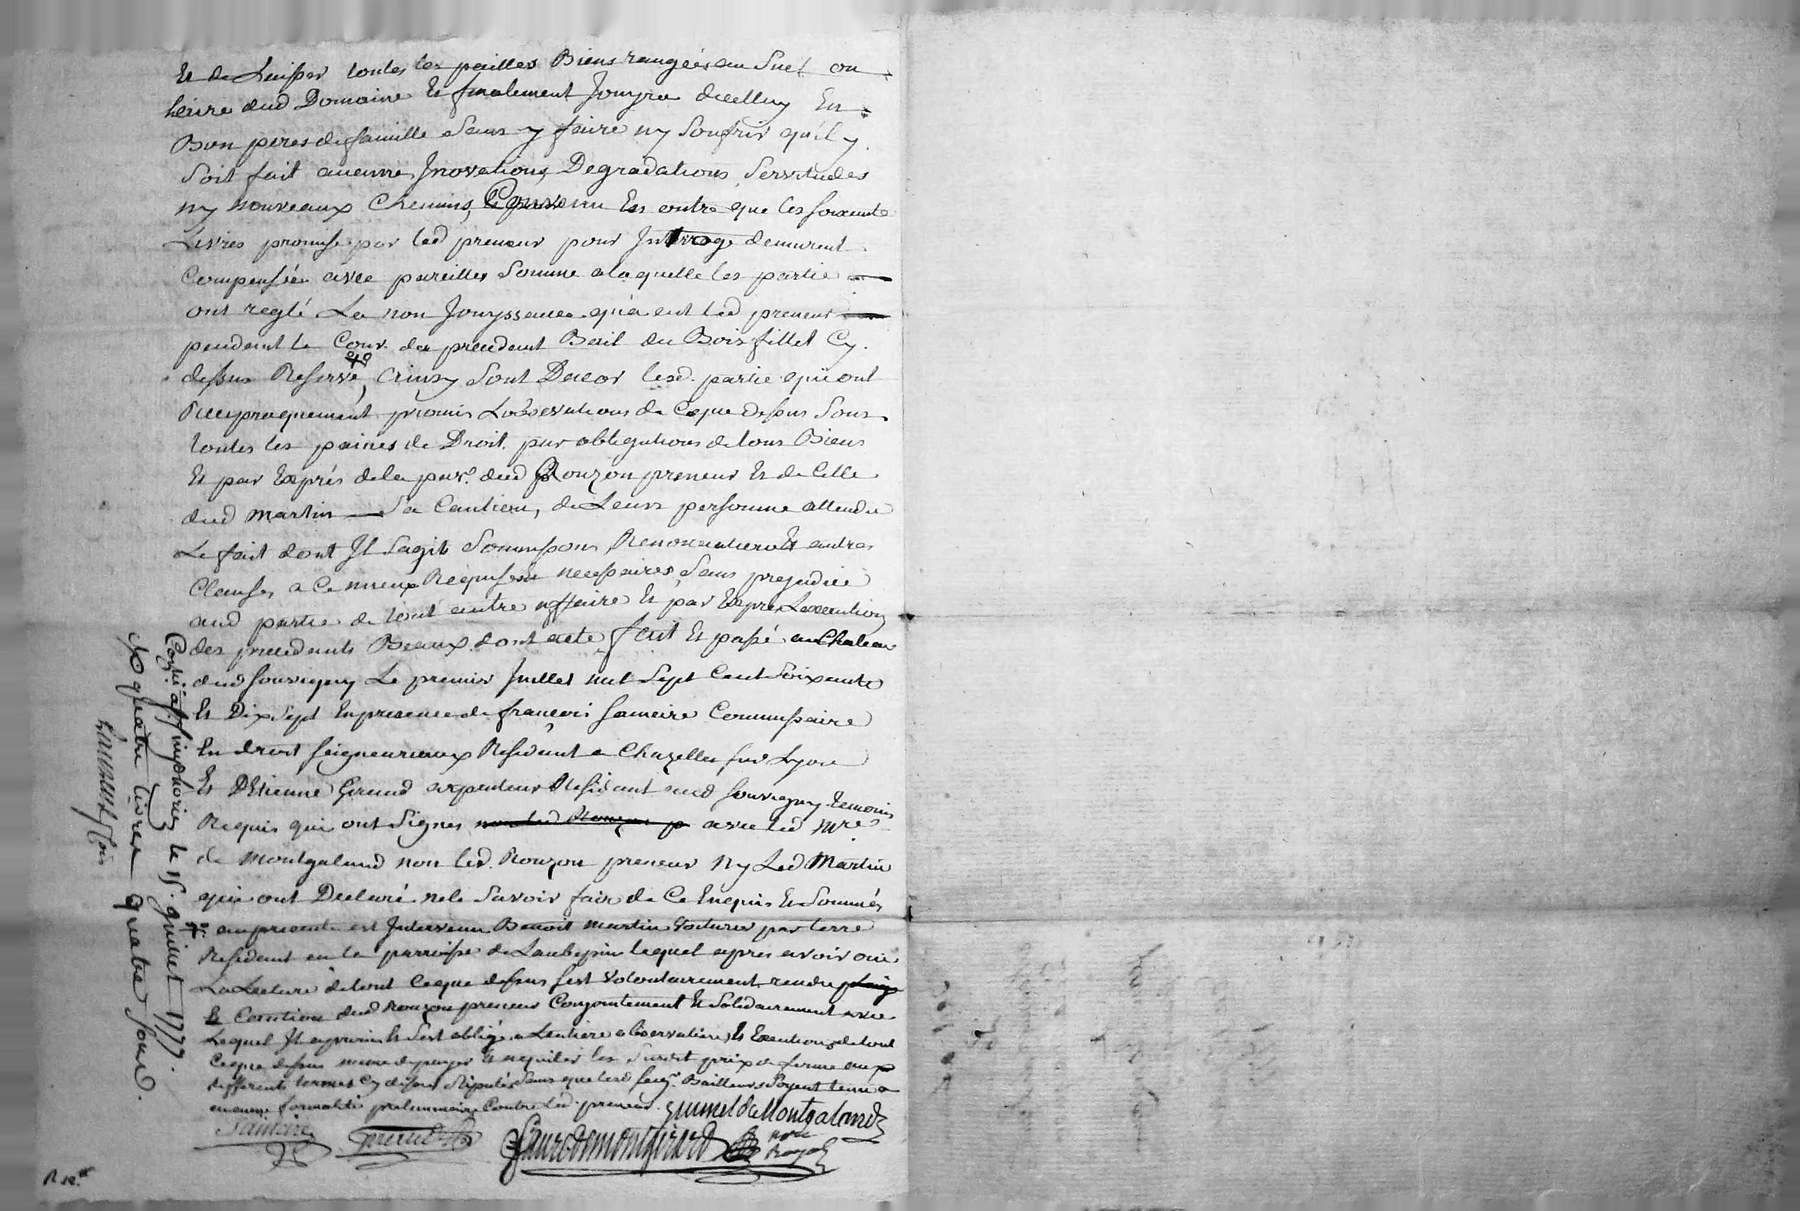 Et de Laisser toutes les pailles Biens rangées au Suel ou
heire dud Domaine Et finalement Jouyra dicelluy En
Bon peres de famille Sans y faire ny Soufrir qu'il y
Soit fait aucunne Jnovations, Degradations, Servitudes
ny nouveaux Chemins, Convenu En outre que les soixante
Livres promise par led preneur pour demurent
Compensée avec pareilles Somme a laquelle les partie
ont reglé La non Jouyssance qu'a eut led preneur
pendant le Cour des precedent Bail du Bois fillet Cy
dessus Reservé, Crinsy Sont Dacor lesd. partie qui ont
Reciproquement promis Lobservations de Ceque dessus Sous
toutes les paines de Droit par obligations de tous Biens
Et par Exprés de la par.t dud Rouzon preneur Et de Celle
dud Martin Sa Cautiom, de Leurs personne attendu
Le fait dont Jl Sagit Soumissions Renonciations Et autres
Clauses a Ce mieux Requises et necessaires, Sans prejudice
aud partie de tout autre affaire Et par Expres Lexecution
des precedents Beaux dont acte fait Et passé au Chateau
dud Souvigny Le premier Juillet mil Sept Cent Soixante
Et Dix Sept En presence de françois Commissaire
En droit seigneuriaux Residant a Chazelles sur Lyon
Et DEtienne Giraud arpenteur Residant aud Souvigny temoins
Requis qui ont Signes avec led Mre
de Montgaland non led. Rouzon preneur Ny Led Martin
qui ont Declaré ne le Savoir faire de Ce Enquis Et Sommés
au present est Intervenu Benoit Martin Voiturier par terre
Residant en la parroisse de Laubepin lequel apres avoir oui
La Lecture de tout Ceque dessus sest volontairement rendu plaige
Et Caution dud Rouzon preneur Conjointement Et Solidairement avec
Lequel Jl a promis Et Sest obligé a Lentiere observation Et Execution de tout
Ceque dessus meme de payer Et aquiter les Susdit prix de ferme aux
differents termes Cy dessus Stipulés Sans que lesd seig.r Bailleurs Soyent tenu a
aucune formalité preliminaire Contre Led. preneur. gimel de Montgaland
faure de montgirard
not.re Royal
Con.lé a St Simphorien le 15 juillet 1777.
R quatre livres quatre sous.
R 12.tt